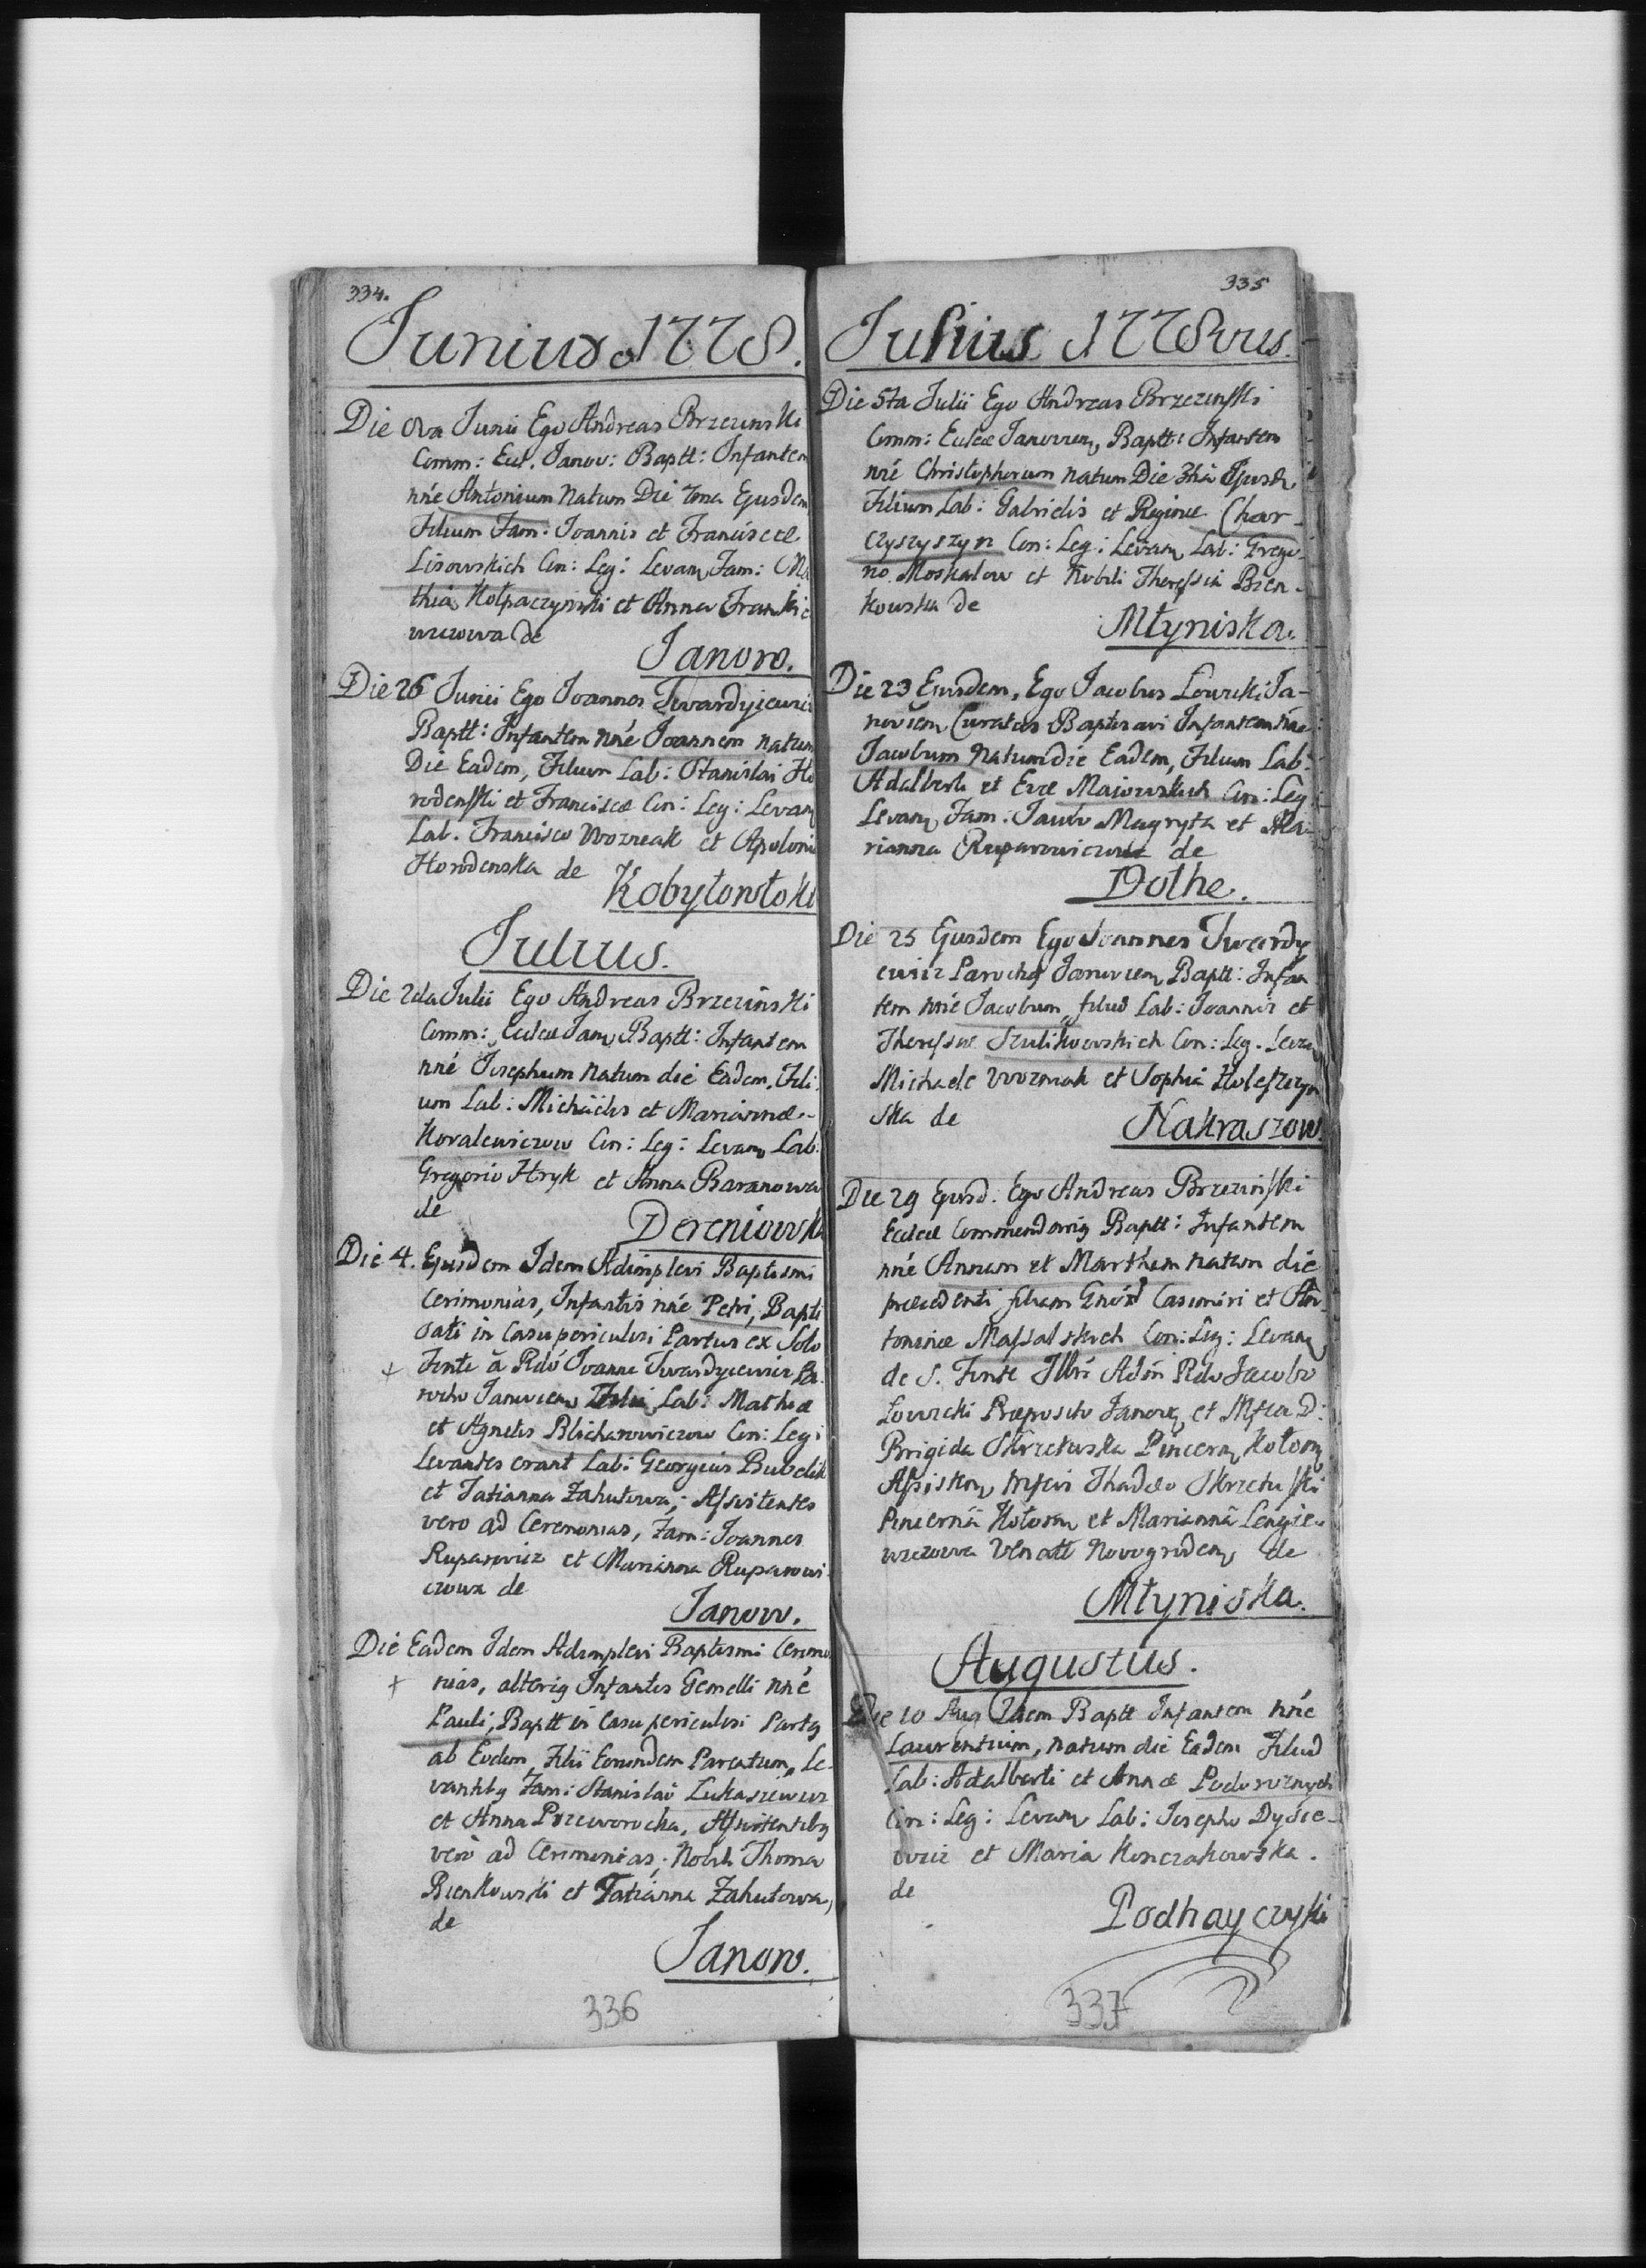 334.
Junius 1778.
Die 8va Junii Ego Andreas Brzezinski
Comm: Eccl. Janov: Baptt: Infantem
nñe Antonium Natum Die 7ma Ejusdem
Filium Fam: Joannis et Franciscæ
Lisowskich Con: Leg: Levan Fam: Ma
thia Kolpaczynski et Anna Frankie
wiczowa de
Janow.
Die 26 Junii Ego Joannes Twardyiewicz
Baptt: Infantem nñe Joannem natum
Die Eadem, Filium Lab: Stanislai Ho
rodenski et Franciscæ Con: Leg: Levan
Lab. Francisco Wozneak et Apolonia
Horodenska de
Kobylowloki
Julius.
Die 2da Julii Ego Andreas Brzezinski
Comm: Eccleæ Jan Baptt: Infantem
nñe Josephum Natum die Eadem, Fili
um Lab: Michaelis et Mariannæ
Kovalewiczow Con: Leg: Levan Lab:
Gregorio Hryk et Anna Baranowa
de
Dereniowk
Die 4. Ejusdem Idem Adimplevi Baptismi
Cerimonias, Infantis nñe Petri, Bapti
sati in Casu periculosi Partus ex Solo
+ Fonte à Rdo Joanne Twardyiewicz Pa
rocho Janovien Filii Lab: Mathiæ
et Agnetis Blicharowiczow Con: Leg:
Levantes erant Lab: Georgius Bubelik
et Tatianna Zahutowa; Assistentes
vero ad Ceremonias, Fam: Joannes
Ruparowicz et Marianna Ruparowi
czowa de
Janow.
Die Eadem Idem Adimplevi Baptismi Cerimo
+ nias, alterig Infantis Gemelli nñe
Pauli, Baptt in Casu periculosi Partg
ab Eodem, Filii Eorundem Parentum, Le-
vantibg Fam: Stanislao Lukasiewicz
et Anna Przeworocka, Assistentibg
vero ad Cerimonias, Nobili Thoma
Bienkowski et Tatianna Zahutowa,
de
Janow.
336
335
Julius 1778vus.
Die 5ta Julii Ego Andreas Brzezinski
Comm: Eccleæ Janovien Baptt: Infantem
nñe Christophorum natum Die 3tia Ejusd
Filium Lab: Gabrielis et Reginæ Char-
czyszyszyn Con: Leg: Levan Lab: Grego-
rio Moskalow et Nobili Theressia Bien-
kowska de
Mlyniska.
Die 23 Ejusdem, Ego Jacobus Lowicki Ja-
novien Curatus Baptisavi Infantem nñe
Jacobum Natum die Eadem, Filium Lab:
Adalberti et Evæ Maiowskich Con: Leg
Levan Fam: Jacobo Magryta et Ma-
rianna Ruparowiczowa de
Dolhe.
Die 25 Ejusdem Ego Joannes Twardy
ewicz Parochg Janovien Baptt: Infan
tem nñe Jacobum, filiu Lab: Joannis et
Theressiæ Szulikowskich Con: Leg. Levan
Michaele Wozniak et Sophia Holeszczyn
ska de
Nakraszow
Die 29 Ejusd. Ego Andreas Brzezinski
Eccleæ Commendarig Baptt: Infantem
nñe Annam et Martham natam die
præcedenti filiam Casimiri et An
toninæ Massalskich Con: Leg: Levan
de S. Fonte Illri Adm Rdo Jacobo
Lowicki Præposito Janov et D:
Brigida Skrzetuska Pincern Kolom
Thadeo Skrzetuski
Pincerna Kolom et Marianna Lengie-
wiczowa Venatt Novogroden de
Mlyniska.
Augustus.
Die 10 Aug Idem Baptt Infantem nñe
Laurentium, natum die Eadem Filiu
Lab: Adalberti et Annæ Podoroznych
Con: Leg: Levan Lab: Josepho Dysie-
wicz et Maria Konczakowska.
de
Podhayczyki
337